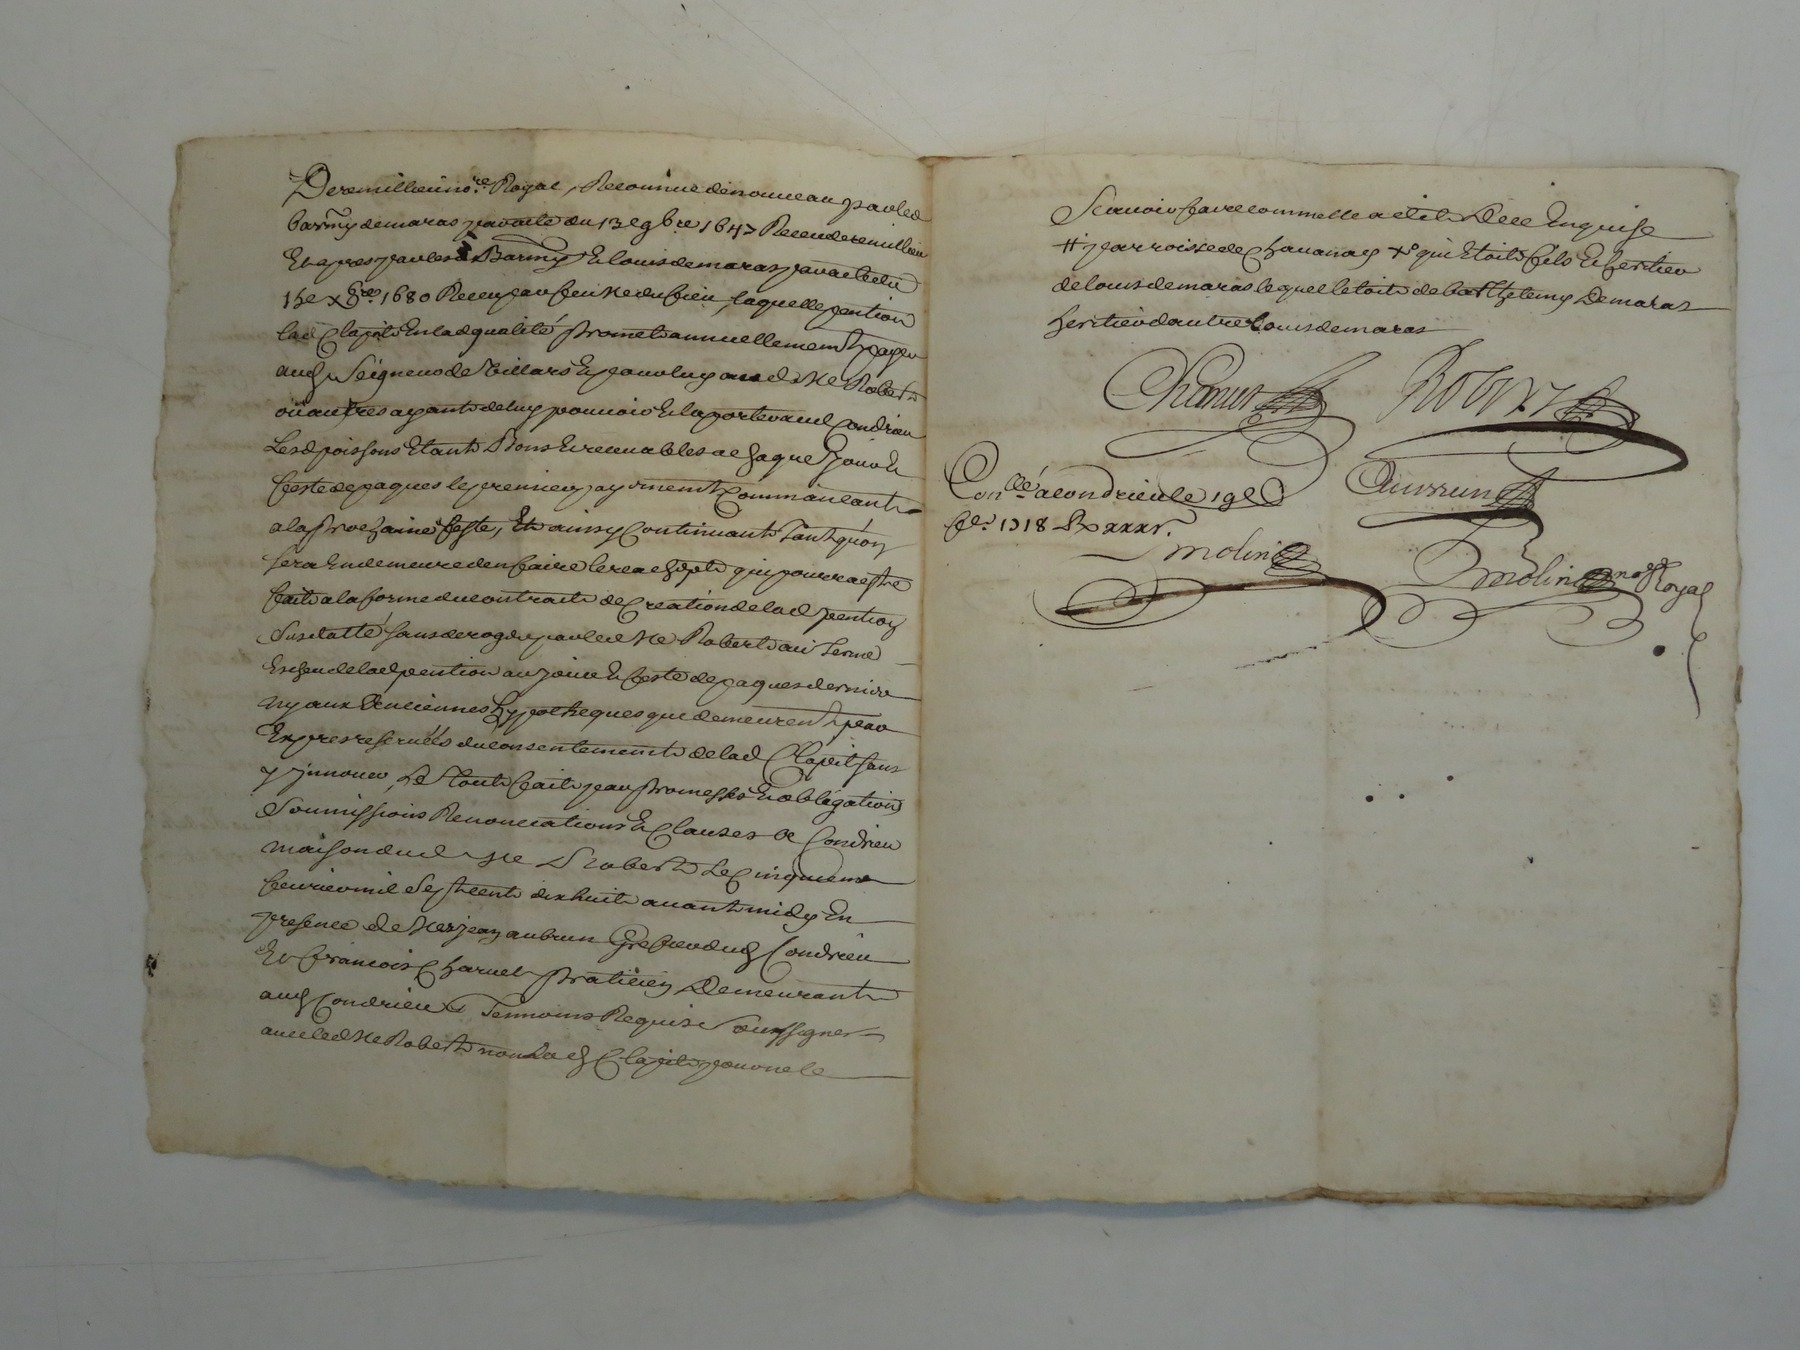 Deremillieu no.re Royal, Reconnue de nouveau par led
barmy demaras par acte du 13e 9bre 1647 Receu deremillieu
Et apres par les d Barmy Et louis demaras par acte du
15e xbre 1680 Receu par feu Me dufieu, laquelle pention
lad Clapit En lad qualité promet annuellement payer
aud Seigneur de Villars Et pour luy aud Me Robert
ou autres ayant de luy pouvoir Et la porter aud Condrieu
Lesd poissons Etant Bons Et recevables a chaque Jour Et
feste de paques le premier payement Commancant
a la prochaine feste, Et ainsy Continuant tant qu'on
sera En demeure d'en faire le reachept qui pourra estre
fait a la forme du contract de Creation de lad pention
Susdatté sans deroger par led Me Robert au terme
Escheu de lad pention au jour Et feste de paques dernier
ny aux Anciennes hypotheques qui demeurent par
Expres reservées du consentement de lad Clapit sans
y jnnover, Le tout fait par promesses Et obligations
Soumissions Renonciations Et Clauses a Condrieu
maison dud Me Robert Le Cinquieme
fevrier mil Sept cent dix huit avant midy En
presence de Me jean aubrun Greffier dud Condrieu
Et francois Charvet praticien Demeurant
aud Condrieu Temmoins Requis Soussignes
avec led Me Robert non lad Clapit pour ne le
Scavoir faire comme elle a dit De ce Enquise
# parroisse de Chavanay x qui Etoit fils Et heritier
de louis demaras lequel letoit de barthelemy Demaras
heritier d'autre Louis demaras
Charvet Robert
Con.llé a Condrieu le 19e
Aubrun
fe. 1718 R xxxx s.
Molin
Molin no.re Royal